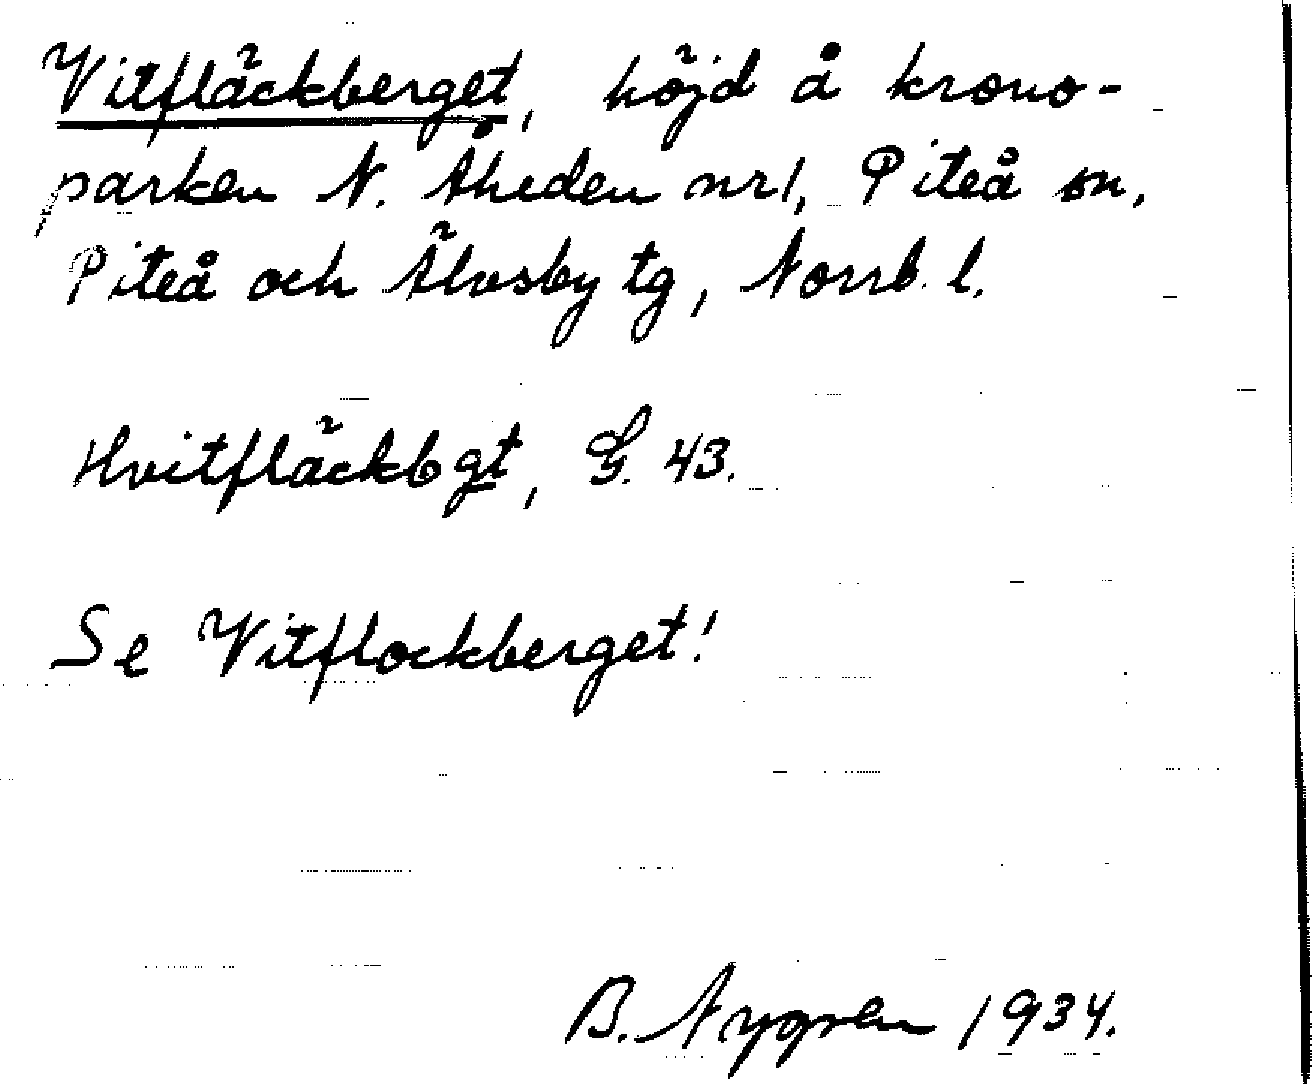 Vitfläckberget, höjd å krono-
parken N. Åheden nr 1, Piteå sn,
Piteå och Älvsby tg, Norrb. l.
Hvitfläckbgt, G. 43.
Se Vitflockberget!
B. Nygren 1934.